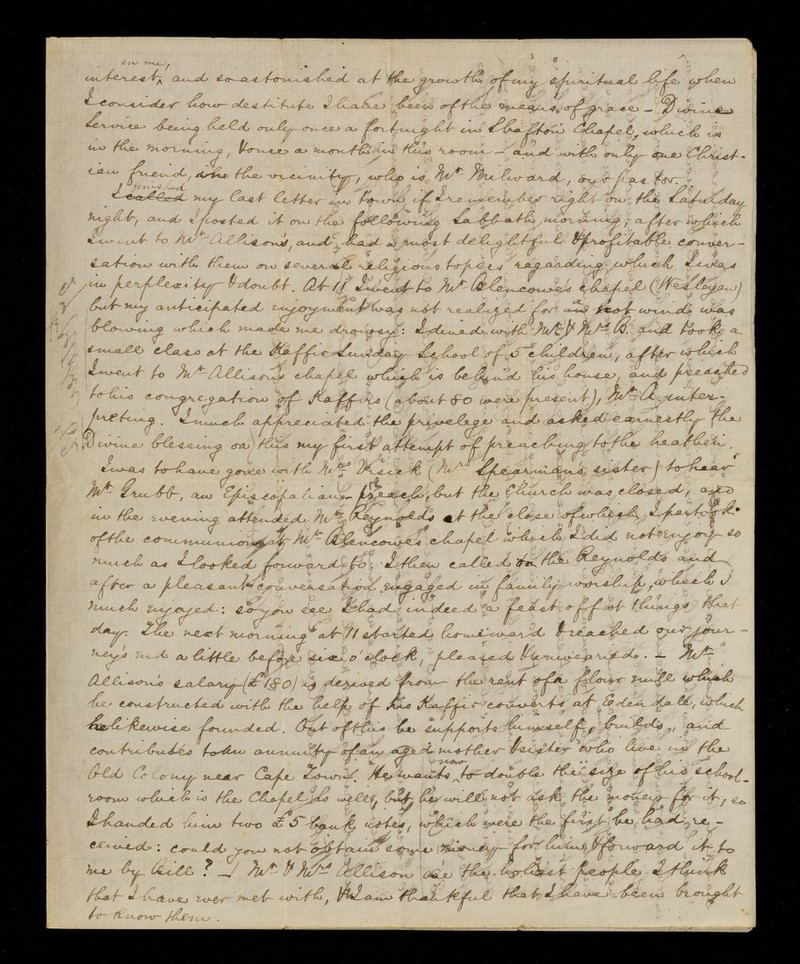 in me,
interest^, and so astonished at the growth of my spiritual life when
I consider how destitute I have been of the means of grace - Divine
Service being held only once a fortnight in Shafton Chapel, which is
in the morning, & once a month in this room - and with only one Christ-
ian friend, in the vicinity, who is Mr Milward, our pastor.
finished
I called my last letter in town if I remember right on the Saturday
night, and I posted it on the following Sabbath morning; after which
I went to Mr Allison's, and had a most delightful & profitable conver-
sation with them on several religious topics regarding which I was
in perplexity & doubt. At 11 I went to Mr Blencowe's chapel (Wesleyan)
but my anticipated enjoyment was not realized for an hot wind was
blowing which made me drowsy: I dined with Mr & Mrs B. and took a
small class at the Kaffir Sunday School of 5 children, after which
I went to Mr Allison's chapel which is behind his house, and preached
to his congregation of Kaffirs (about 80 were present), Mr A. inter-
preting. I much appreciated the privelege and asked earnestly the
Divine blessing on this my first attempt of preaching to the heathen.
I was to have gone with Mrs (Mrs Spearman's sister) to hear
Mr Grubb, an Episcopalian - preach, but the Church was closed, and
in the evening attended Mr Reynolds at the close of which I partook
of the communion at Mr Blencowe's chapel which I did not enjoy so
much as I looked forward to; I then called on the Reynolds and
after a pleasant conversation engaged in family worship, which I
much enjoyed: so you see I had indeed a feast of fat things that
day. The next morning at 11 started homeward & reached our jour-
ney's end a little before six o'clock, pleased & unwearied. - Mr
Allison's salary (£180) is derived from the rent of a flour mill which
he constructed with the help of his Kaffir converts at Edendale, which
he likewise founded. Out of this he supports himself, builds, and
contributes to an annuity of an aged mother & sister who live in the
now
Old Colony near Cape Town. He wants^ to double the size of his school-
room which is the Chapel as well, but he will not ask the money for it, so
I handed him two £5 bank notes, which were the first he had re-
ceived: could you not obtain some money for him & forward it to
me by bill? - Mr & Mrs Allison are the holiest people I think
that I have ever met with, & I am thankful that I have been brought
to know them.